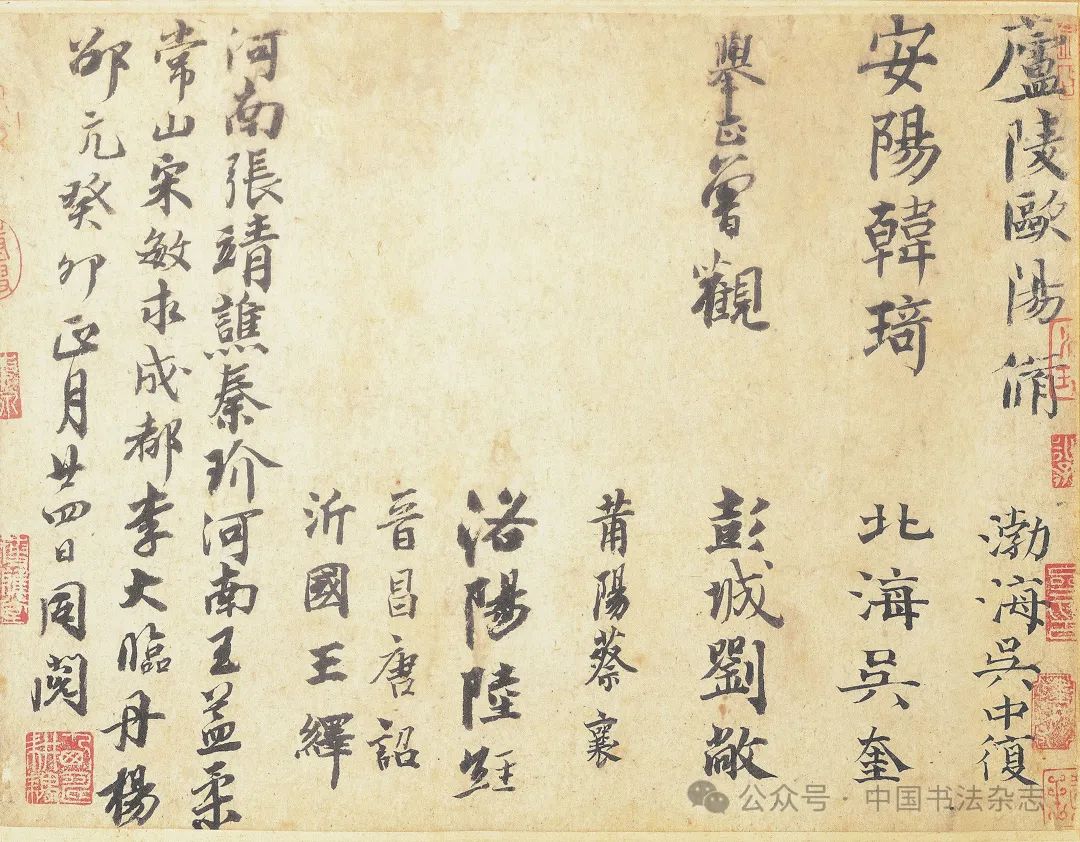 廬陵歐陽脩
渤海吳中復
安陽韓琦
北海吳奎
舉正曾觀
彭城劉敞
莆陽蔡襄
洛陽陸經
晉昌唐詔
沂國王繹
河南張靖譙秦玠河南王益柔
常山宋敏求成都李大臨丹楊
邵亢癸卯正月廿四日同閱
公众号 · 中国书法杂志